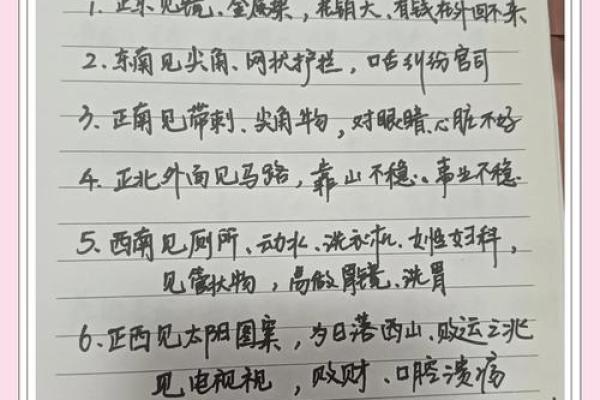 1、正东见镜、金属架,花销大、有钱在外回不来
2、东南见尖角、网状护拦,口舌纠纷官司
3、正南见带刺、尖角物,对眼睛、心脏不好
4、正北外面见马路,靠山不稳、事业不稳
5、西南见厕所、动水、洗衣机、女性妇科,
见管状物,易做胃镜、洗胃
6、正西见太阳图案,为日落西山、败运之兆
见电视视,败财、口腔溃疡